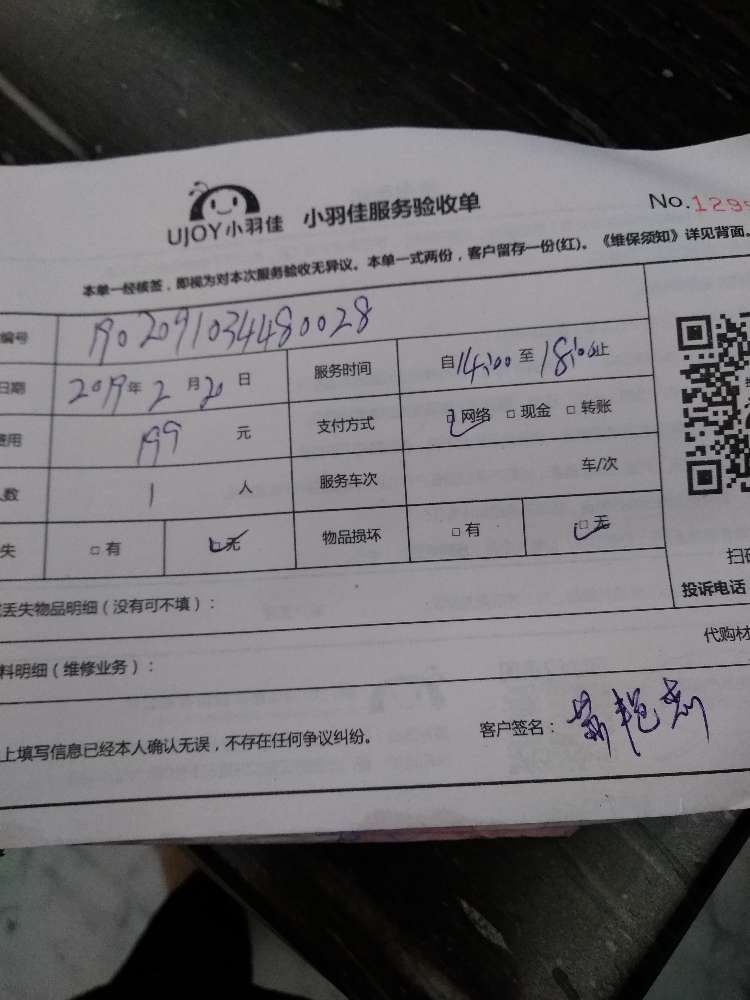 UJOY小羽佳 小羽佳服务验收单 No.129
本单一经核签，即视为对本次服务验收无异议。本单一式两份，客户留存一份(红)。《维保须知》详见背面。
编号 1902091034480028
日期 2019年2月20日 服务时间 自14:00至18:00止
费用 199元 支付方式 □网络 □现金 □转账
人数 1人 服务车次 车/次
失 □有 □无 物品损坏 □有 □无
扫码
丢失物品明细（没有可不填）： 投诉电话
料明细（维修业务）： 代购材
上填写信息已经本人确认无误，不存在任何争议纠纷。 客户签名：